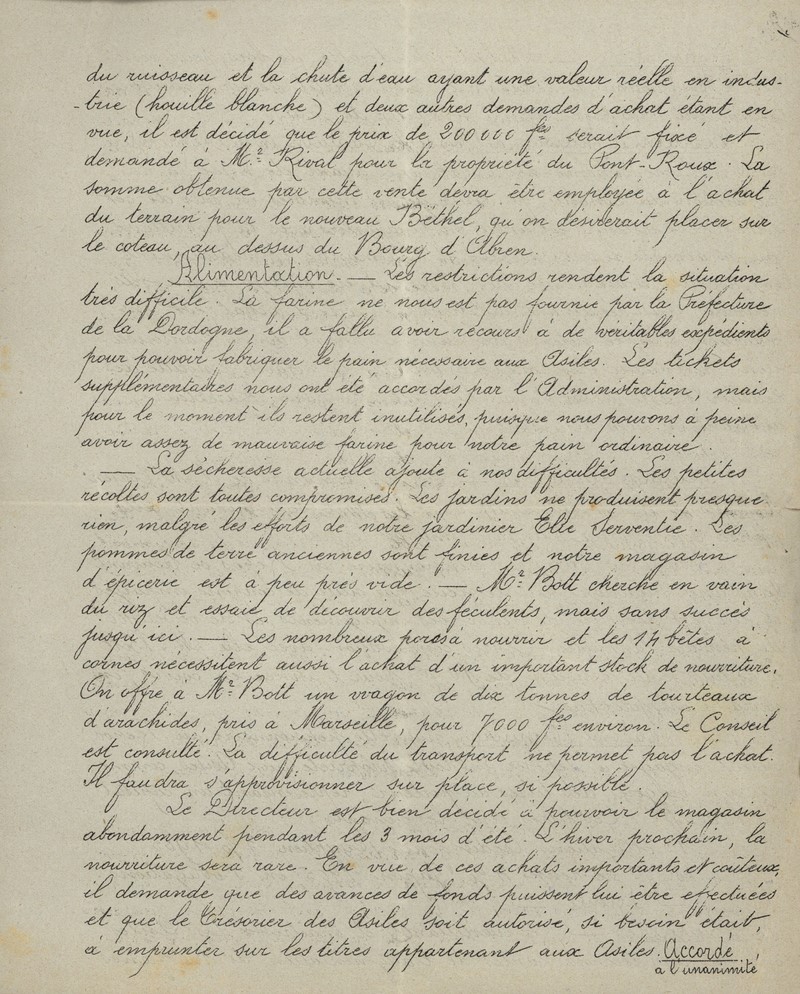 du ruisseau et la chute d'eau ayant une valeur réelle en indus-
-trie (houille blanche) et deux autres demandes d'achat étant en
vue, il est décidé que le prix de 200000 frs serait fixé et
demandé à Mr. Rival pour la propriété du Pont-Roux. La
somme obtenue par cette vente devra être employée à l'achat
du terrain pour le nouveau Béthel, qu'on désirerait placer sur
le coteau, au dessus du Bourg d'Abren.
Alimentation. — Les restrictions rendent la situation
très difficile. La farine ne nous est pas fournie par la Préfecture
de la Dordogne, il a fallu avoir recours à de veritables expédients
pour pouvoir fabriquer le pain nécessaire aux Asiles. Les tickets
supplémentaires nous ont été accordés par l'Administration, mais
pour le moment ils restent inutilisés, puisque nous pouvons à peine
avoir assez de mauvaise farine pour notre pain ordinaire.
— La sécheresse actuelle ajoute à nos difficultés. Les petites
récoltes sont toutes compromises. Les jardins ne produisent presque
rien, malgré les efforts de notre jardinier Elie Serventie. Les
pommes de terre anciennes sont finies et notre magasin
d'épicerie est à peu près vide. — Mr. Bott cherche en vain
du riz et essaie de découvrir des féculents, mais sans succès
jusqu'ici. — Les nombreux porcs à nourrir et les 14 bêtes à
cornes nécessitent aussi l'achat d'un important stock de nourriture.
On offre à Mr. Bott un wagon de dix tonnes de tourteaux
d'arachides, pris à Marseille, pour 7000 frs environ. Le Conseil
est consulté. La difficulté du transport ne permet pas l'achat.
Il faudra s'approvisionner sur place, si possible.
Le Directeur est bien décidé à pourvoir le magasin
abondamment pendant les 3 mois d'été. L'hiver prochain, la
nourriture sera rare. En vue de ces achats importants et coûteux,
il demande que des avances de fonds puissent lui être effectuées
et que le Trésorier des Asiles soit autorisé, si besoin était,
à emprunter sur les titres appartenant aux Asiles. Accordé,
à l'unanimité